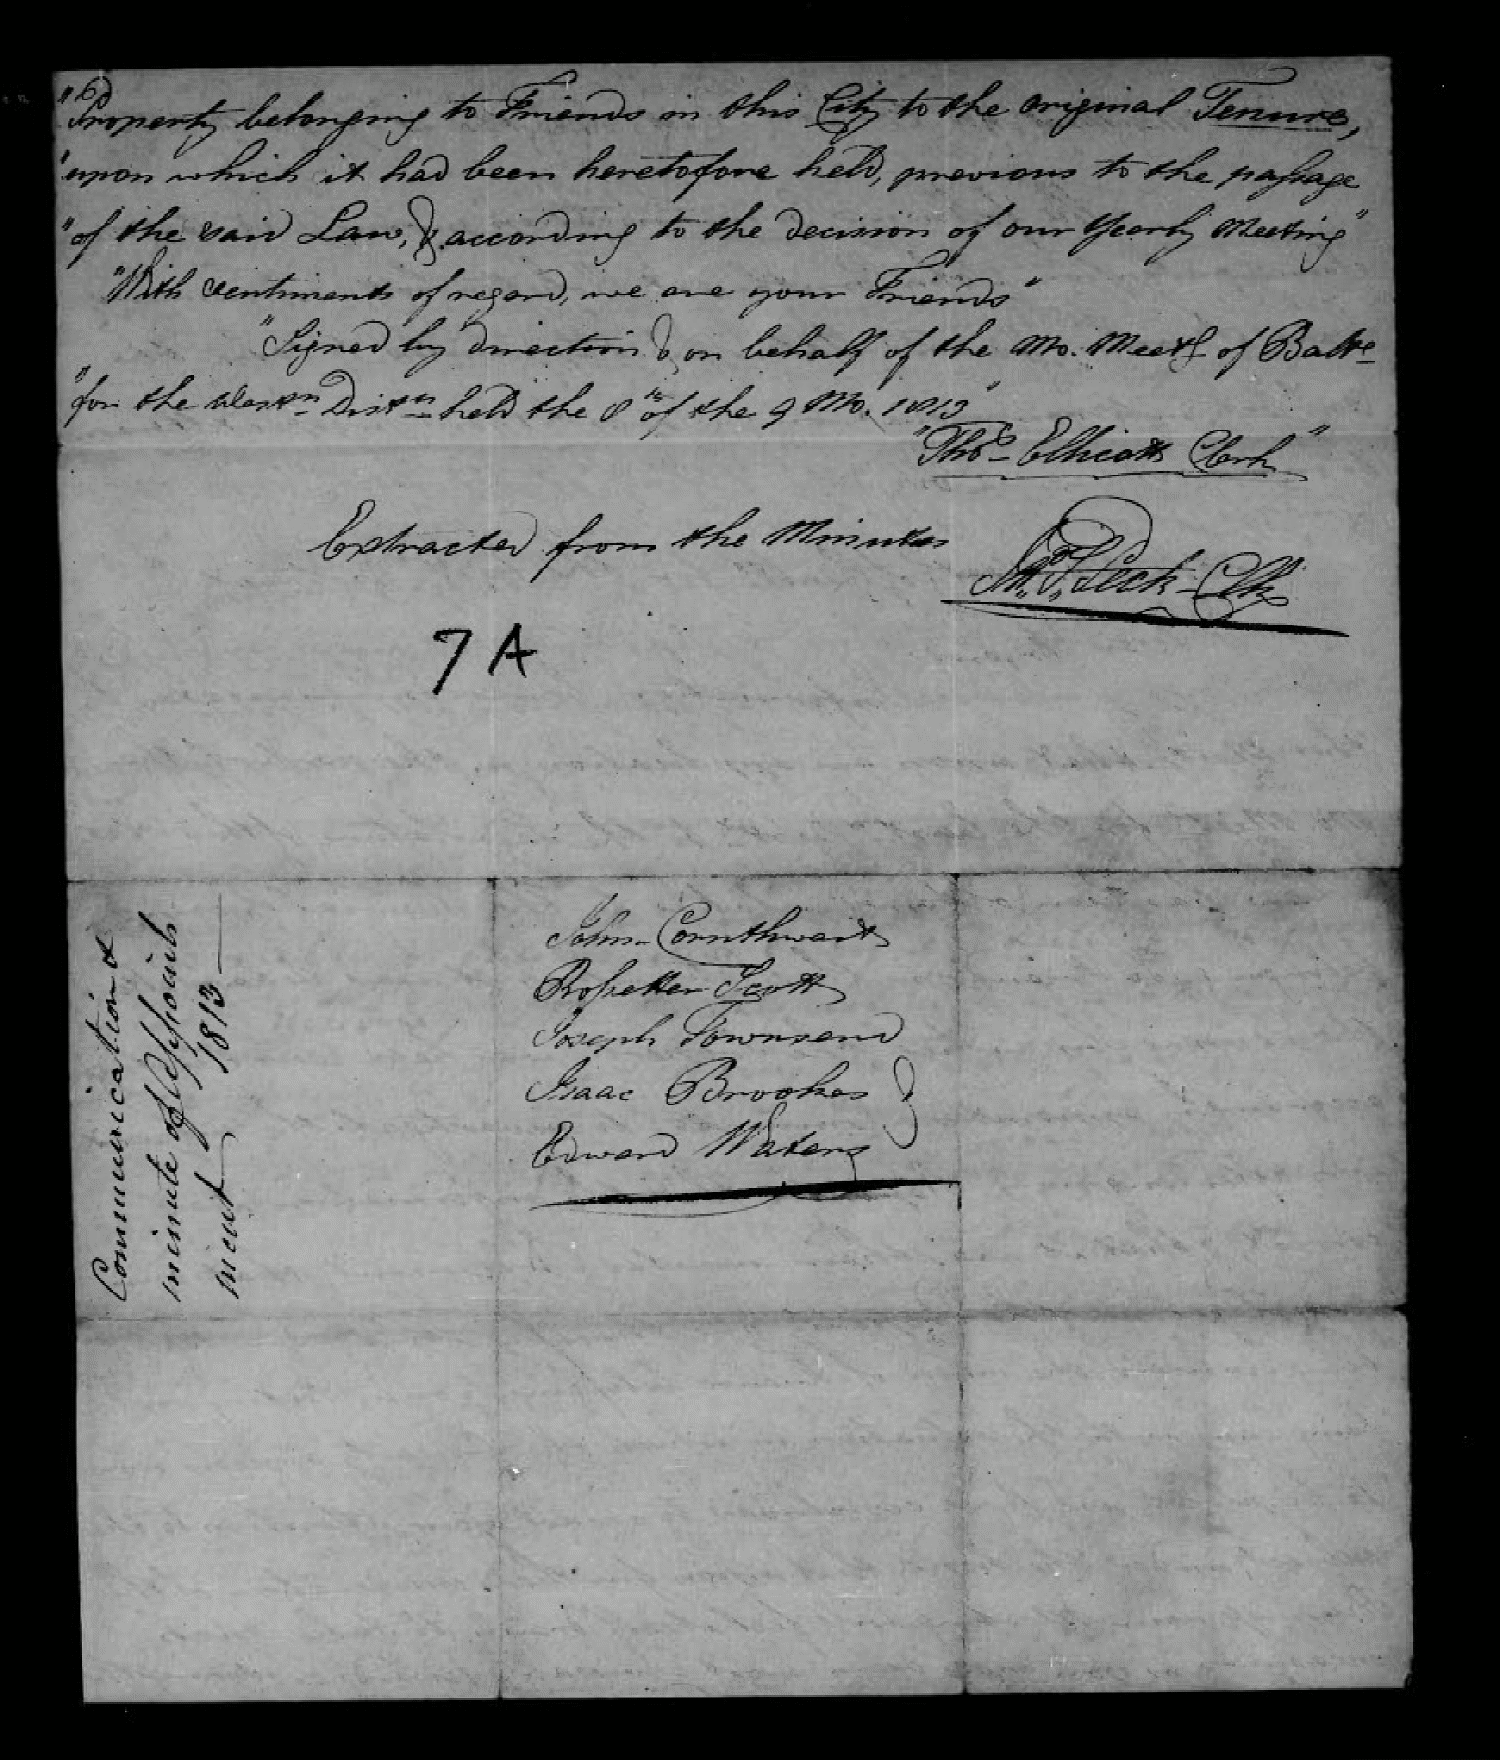 6
"Property belonging to Friends in this City to the original Tenure,
"upon which it had been heretofore held, previous to the passage
"of the said Law, & according to the decision of our Yearly Meeting"
"With sentiments of regard, we are your Friends"
"Signed by direction & on behalf of the Mo. Meetg of Balte
"for the Westn Distn held the 8th of the 9 Mo. 1813"
"Thos Ellicott Clerk"
Extracted from the Minutes
Peck Clk
7 A
John Cornthwait
Rossetter Scott
Joseph Townsend
Isaac Brookes
Edward Waters
Communication &
minute of Appoint
ment 1813